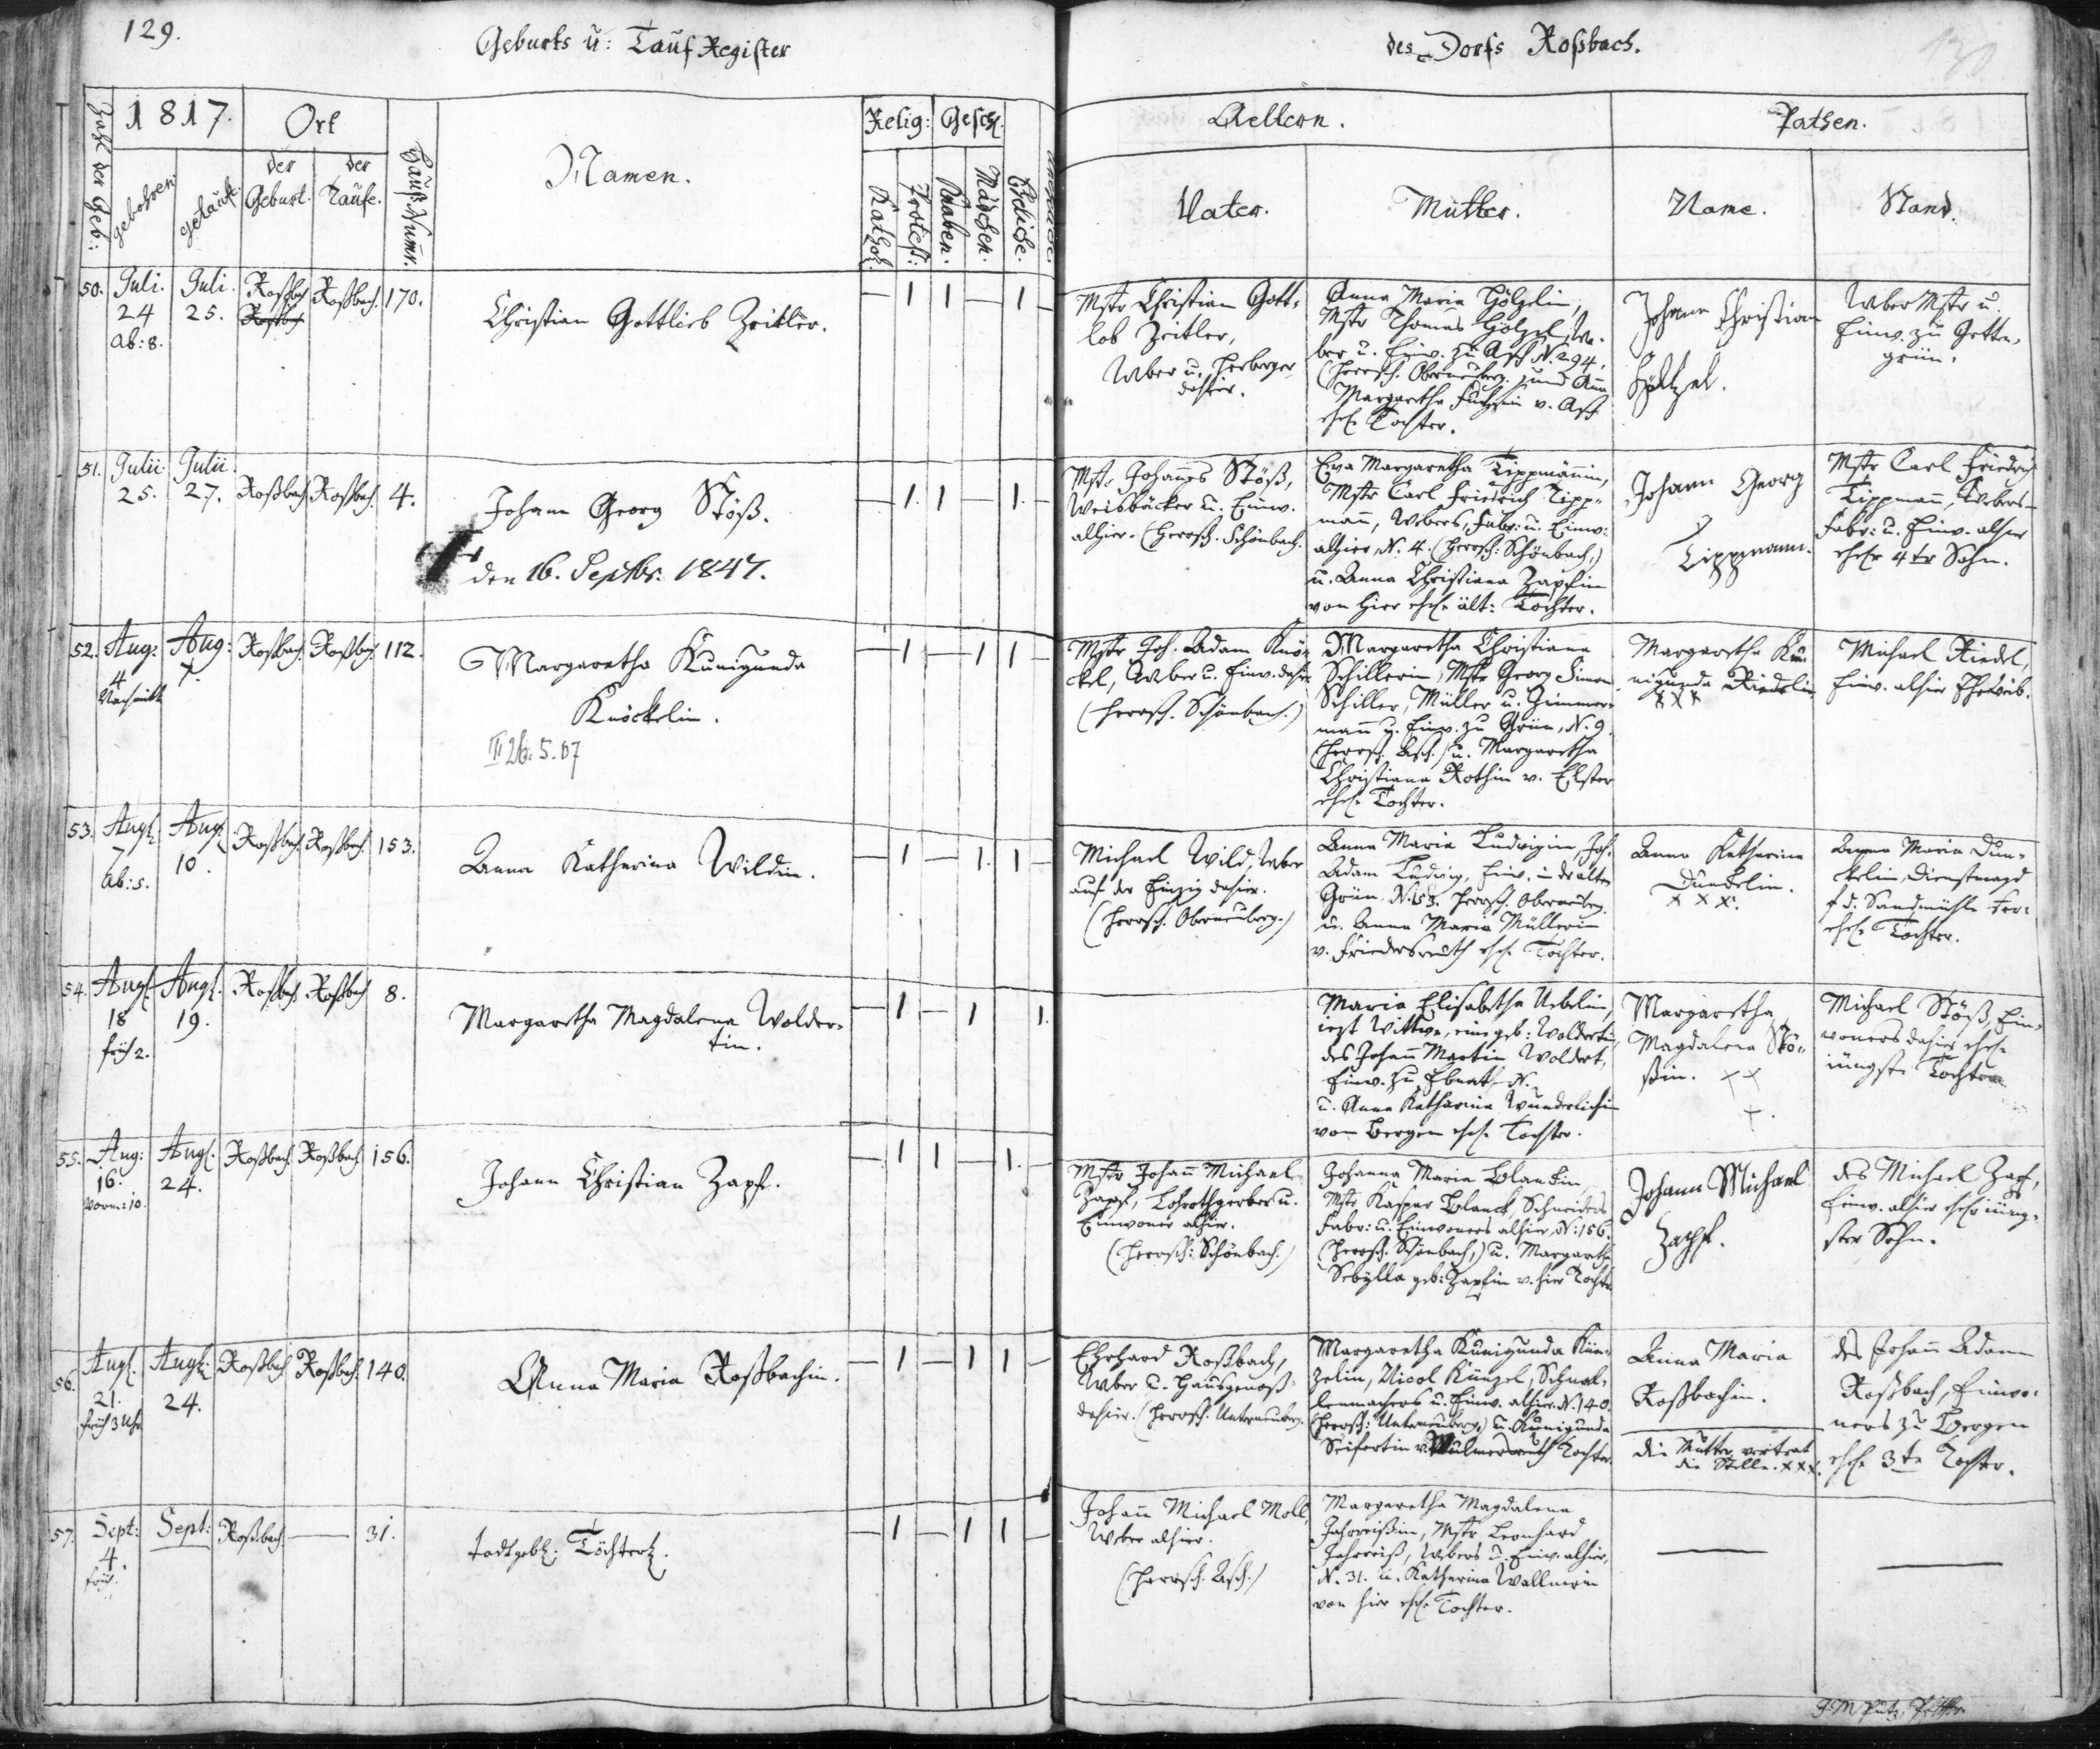 129.
Geburts u: Tauf Register
des Dorfs Roßbach.
130
Zahl der Geb:
1817.
Ort
gebohren.
getauft.
der Geburt.
der Taufe.
Hauß Numr.
Namen.
Relig:
Gesch.
Kathol.
Protest:
Knaben.
Mädchen.
Eheliche.
Aeltern.
Pathen.
Vater.
Mutter.
Name.
Stand.
50. Juli. Juli. Roßbach Roßbach. 170.
24 25.
ab: 8.
Christian Gottlieb Zeitler.
— 1 1 — 1
Mstr Christian Gott-
lob Zeitler,
Weber u. Herberger
dahier.
Anna Maria Hölzelin,
Mstr Thomas Hölzel, We-
ber u. Einw. zu Asch N. 294,
(Herrsch. Oberneuberg.) und Anna
Margaretha Fuchsin v. Asch
ehel. Tochter.
Johann Christian
Höltzel.
Weber Mstr u.
Einw. zu Getten-
grün.
51. Julii Julii Roßbach Roßbach. 4.
25. 27.
Johann Georg Stöß.
den 16. Septbr. 1847.
— 1. 1 — 1. —
Mstr Johannes Stöß,
Weisbäcker u. Einw.
allhier. (Herrsch. Schönbach.
Eva Margaretha Tippmännin,
Mstr Carl Friedrich Tipp-
mann, Webers, Fabr: u. Einw:
allhier, N. 4. (Herrsch: Schönbach,)
u. Anna Christiana Zapfin
von hier ehel. ält: Tochter.
Johann Georg
Tippmann.
Mstr Carl Friedrich
Tippmann, Webers-
Fabr: u. Einw. alhier
ehel. 4tr Sohn.
52. Aug: Aug: Roßbach. Roßbach. 112.
4 7.
Nachmitt
Margaretha Kunigunda
Knöckelin.
III 26.5.07
— 1 — 1 1 —
Mstr Joh. Adam Knö-
ckel, Weber u. Einw. dahier
(Herrsch. Schönbach.)
Margaretha Christiana
Schillerin, Mstr Georg Simon
Schiller, Müller u. Zimmer-
mann u. Einw. zu Grün, N. 9.
(Herrsch. Asch.) u. Margaretha
Christiana Rothin v. Elster
ehel. Tochter.
Margaretha Ku-
nigunda Riedelin
XXX
Michael Riedel,
Einw. alhier Eheweib.
53. Augl. Augl. Roßbach. Roßbach. 153.
7 10.
Ab: 5.
Anna Katharina Wildin.
— 1 — 1. 1 —
Michael Wild, Weber
auf der Einzig dahier.
(Herrsch. Oberneuberg.)
Anna Maria Ludwigin, Joh.
Adam Ludwig, Einw. in der alten
Grün. N. 153. Herrsch. Oberneuberg.
u. Anna Maria Müllerin
v. Friedersreuth ehel. Tochter.
Anna Katharina
Dunkelin.
XXX.
Anna Maria Dun-
ckelin, Dienstmagd
f d. Sandmühle
ehel. Tochter.
54. Augl. Augl. Roßbach Roßbach 8.
18 19.
früh 2.
Margaretha Magdalena Wolder-
tin.
— 1 — 1 1.
Maria Elisabetha Uebelin,
iezt Wittwe, eine geb: Woldertin,
des Johann Martin Woldert,
Einw. zu Ebnath N.
u. Anna Katharina Wunderlichin
von Bergen ehel. Tochter.
Margaretha
Magdalena Stö-
ßin. XX
+.
Michael Stöß, Ein-
woners dahier ehel.
iüngste Tochter
55. Aug: Augl. Roßbach. Roßbach. 156.
16. 24.
Vorm: 10.
Johann Christian Zapf.
— 1 1 — 1. —
Mstr Johann Michael
Zapf, Lohrothgerber u.
Einwoner alhier.
(Herrsch: Schönbach.)
Johanna Maria Blanckin,
Mstr Kaspar Blanck, Schneiders
Fabr: u. Einwoners alhier, N: 156.
(Herrsch. Schönbach,) u. Margaretha
Sebylla geb: Zapfin v. hier Tochter
Johann Michael
Zapf.
des Michael Zapf,
Einw. alhier ehel. iüng-
ster Sohn.
56. Augl. Augl. Roßbach Roßbach. 140.
21. 24.
früh 3 Uhr
Anna Maria Roßbachin.
— 1 — 1 1 —
Ehrhard Roßbach,
Weber u. Haußgenoß
dahier. (Herrsch. Unterneuberg.
Margaretha Kunigunda Kün-
zelin, Nicol Künzel, Schnal-
lenmachers u. Einw. alhier. N. 140.
(Herrsch: Unterneuberg,) u. Kunigunda
Seifertin v. Wulmersreuth Tochter.
Anna Maria
Roßbachin.
die Mutter vertrat
die Stelle. XXX.
des Johann Adam
Roßbach, Einwo-
ners zu Bergen
ehel. 3te Tochter.
57. Sept: Sept: Roßbach. — 31.
4.
früh.
todtgebl. Töchterl.
— 1 — 1 1 —
Johann Michael Moll,
Weber alhier.
(Herrsch. Asch.)
Margaretha Magdalena
Jahreißin, Mstr Leonhard
Jahreiß, Webers u. Einw. alhier,
N. 31. u. Katharina Wallnerin
von hier ehel. Tochter.